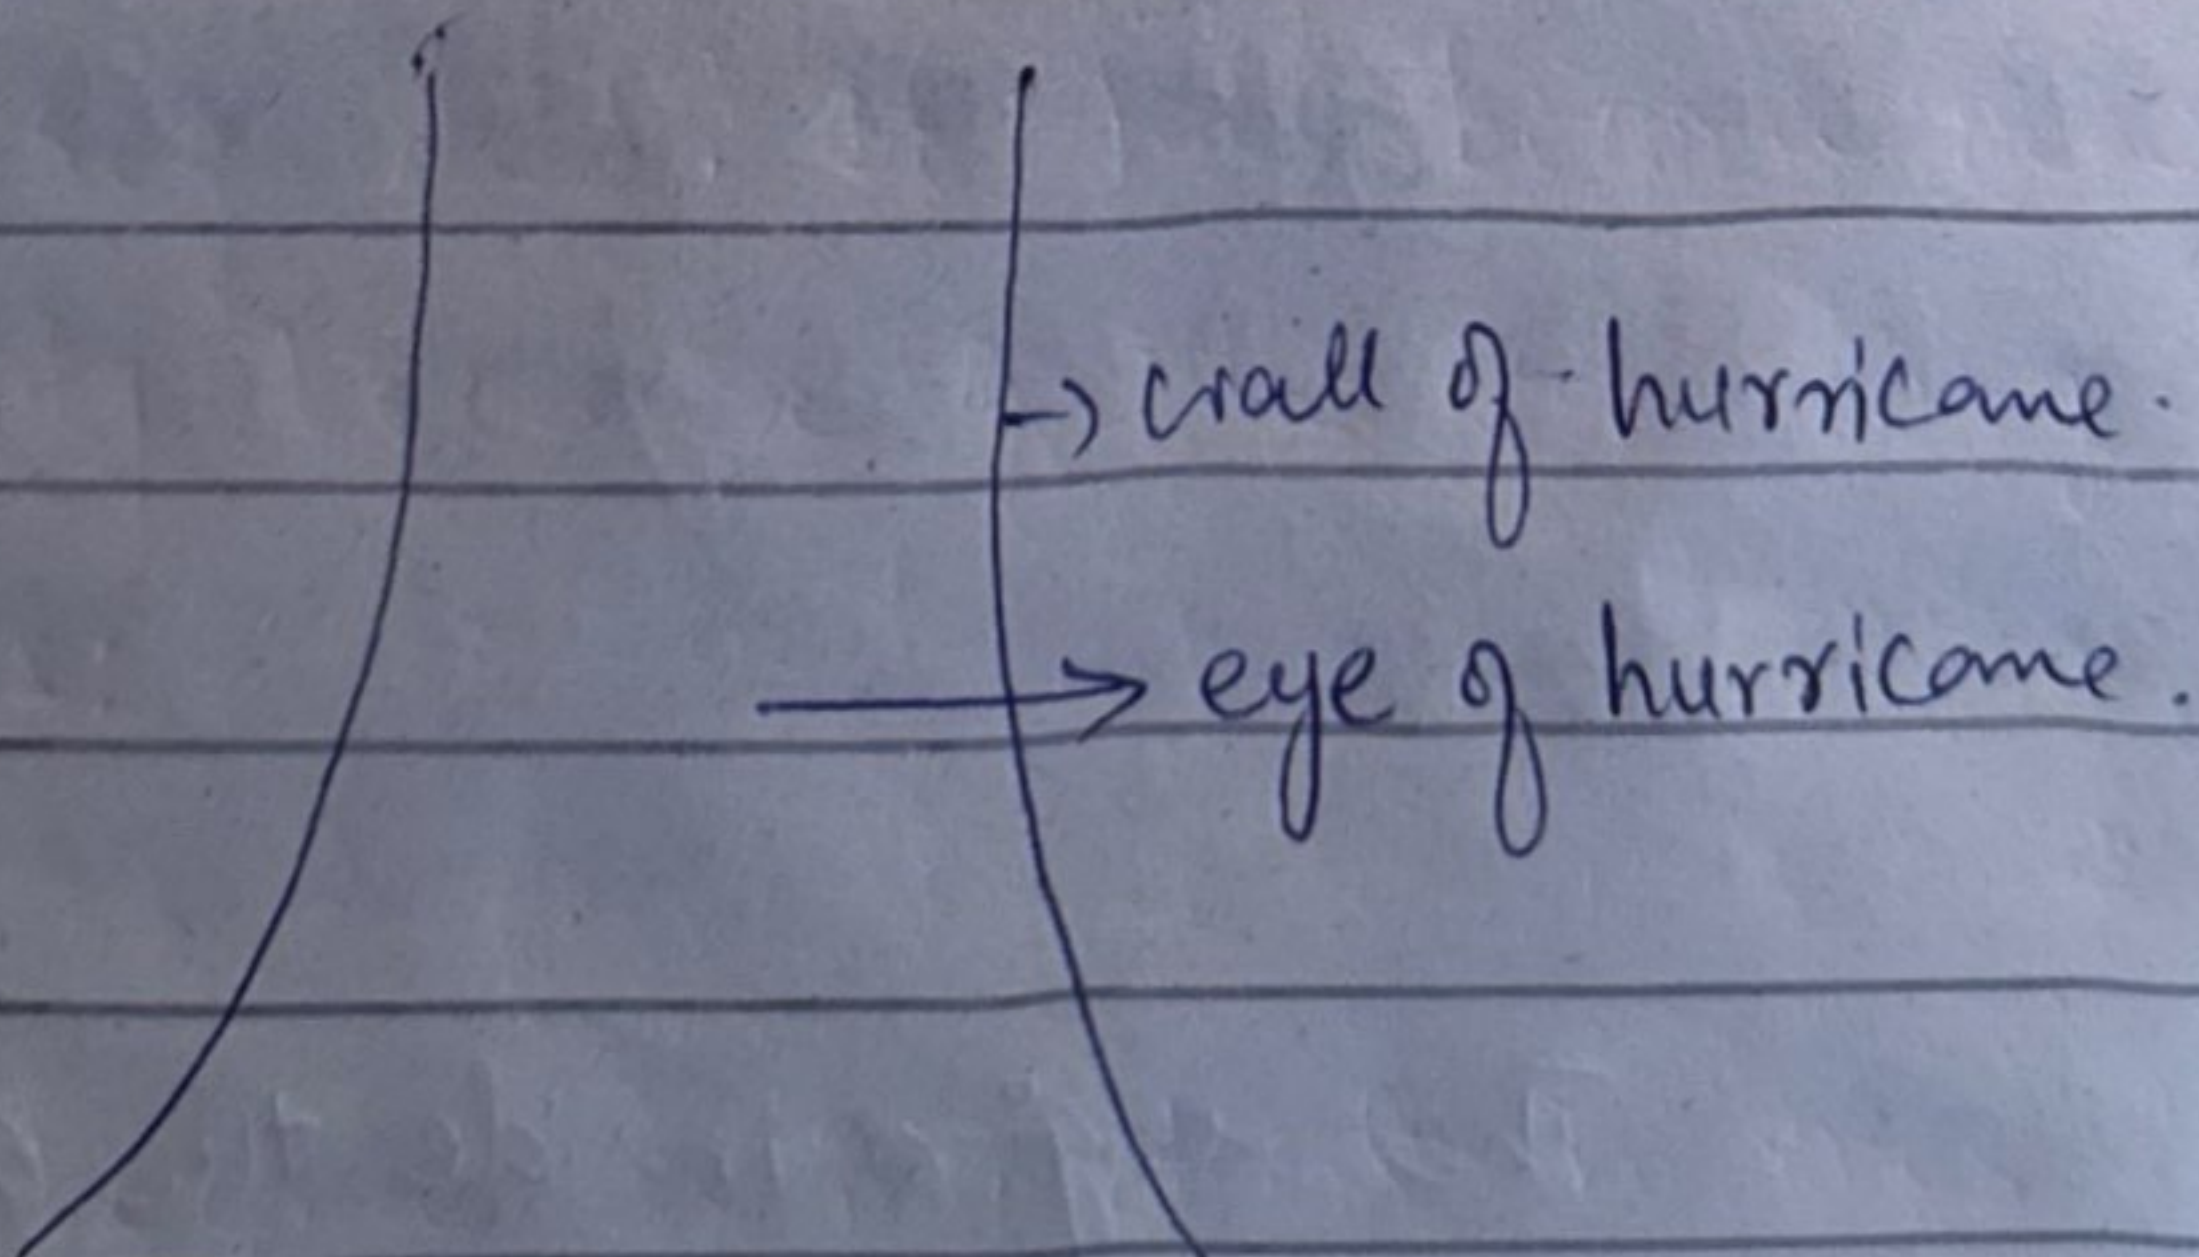 wall of hurricane.
eye of hurricane.